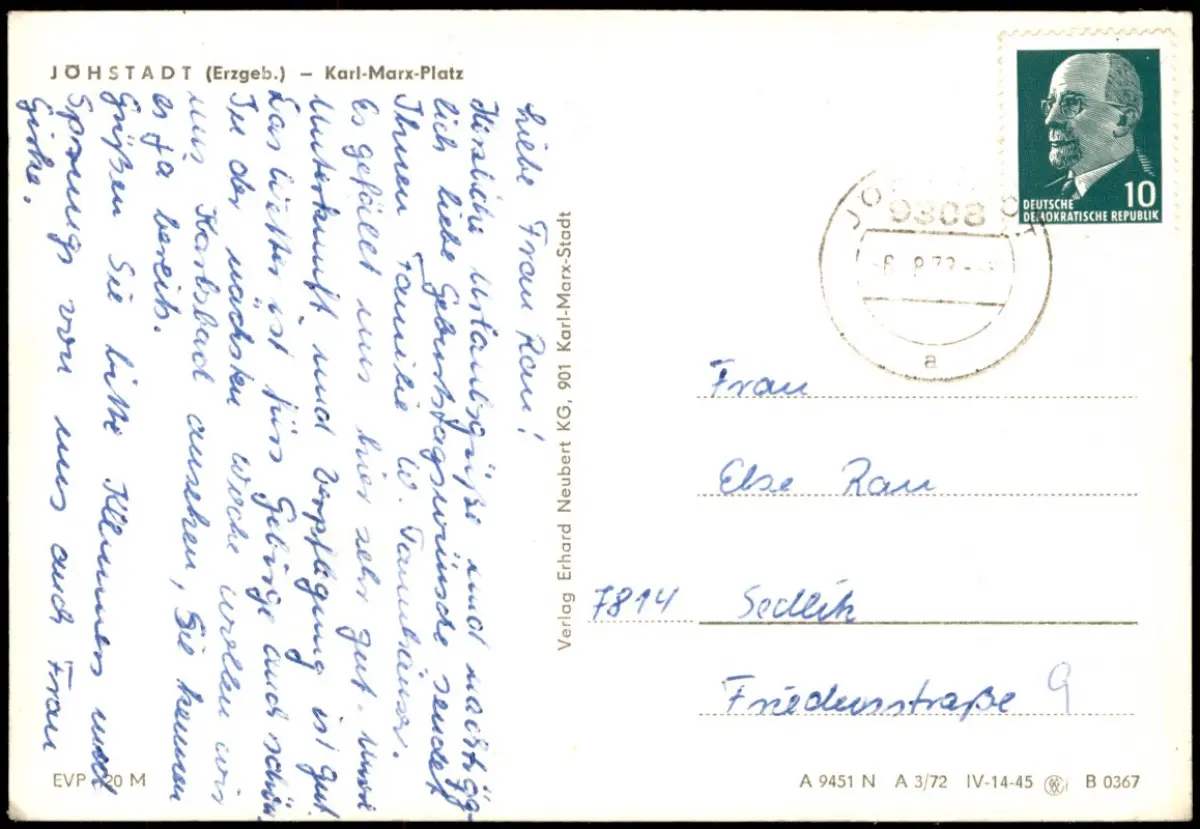 JÖHSTADT (Erzgeb.) – Karl-Marx-Platz
Liebe Frau Rau!
Herzliche Urlaubsgrüße und nachträg-
lich liebe Geburtstagswünsche sendet
Ihnen Familie W. Tannhäuser.
Es gefällt uns hier sehr gut. Unsre
Unterkunft und Verpflegung ist gut.
Das Wetter ist fürs Gebirge auch schön.
In der nächsten Woche wollen wir
uns Karlsbad ansehen, Sie kennen
es ja bereits.
Grüßen Sie bitte Klemmers und
Sprungs von uns auch Frau
Girke.
Verlag Erhard Neubert KG, 901 Karl-Marx-Stadt
10
DEUTSCHE
DEMOKRATISCHE REPUBLIK
9308
a
Frau
Else Rau
7814 Sedlitz
Friedensstraße 9
EVP 20 M
A 9451 N A 3/72 IV-14-45 B 0367